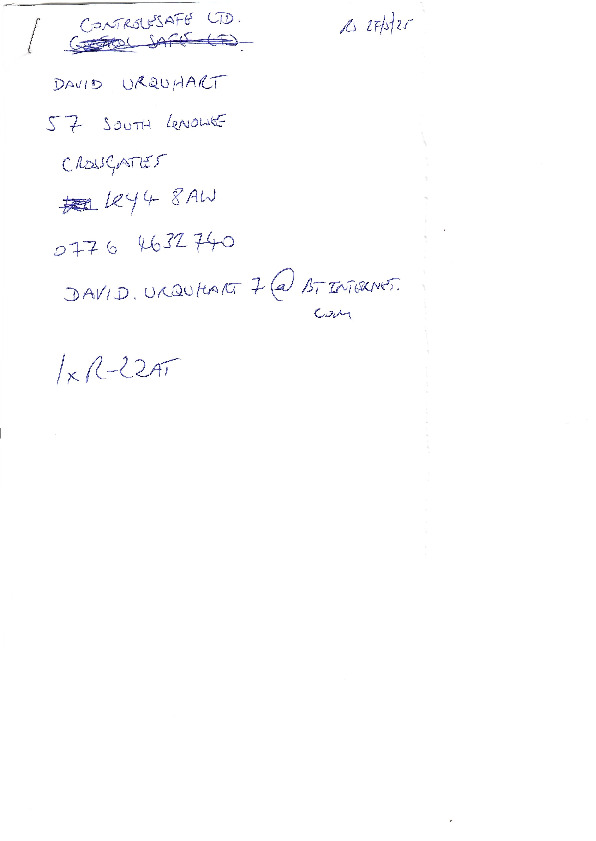 CONTROLSAFE LTD.
R 27/5/25
CONTROL SAFE LTD.
DAVID URQUHART
57 SOUTH KNOWE
CROSSGATES
KY4 8AW
0776 4632740
DAVID.URQUHART7@BTINTERNET.
com
1xR-22AT